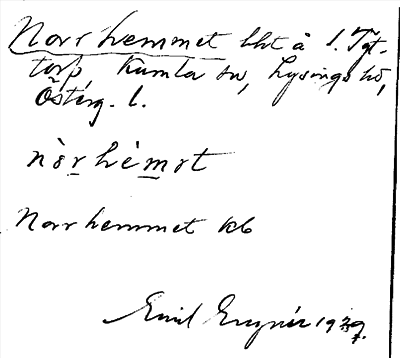 Norrhemmet lht å 1. Tgt.
torp, Kumla sn, Lysings hd,
Österg. l.
nòr̲hèm̲ət
Norrhemmet kb
Emil